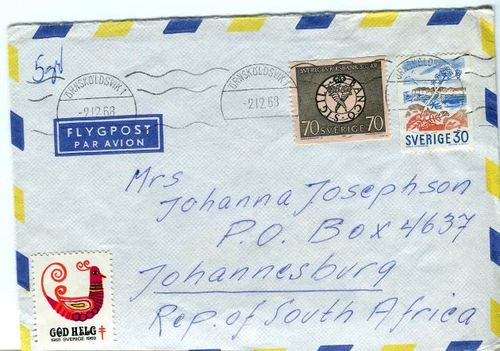 5gr
ÖRNSKÖLDSVIK 1
-2.12.68
ÖRNSKÖLDSVIK 1
-2.12.68
SVERIGES RIKSBANK 300 ÅR
70 SVERIGE 70
SVERIGE 30
FLYGPOST
PAR AVION
Mrs
Johanna Josephson
P.O. Box 4637
Johannesburg
Rep. of South Africa
GOD HELG
1968 SVERIGE 1968